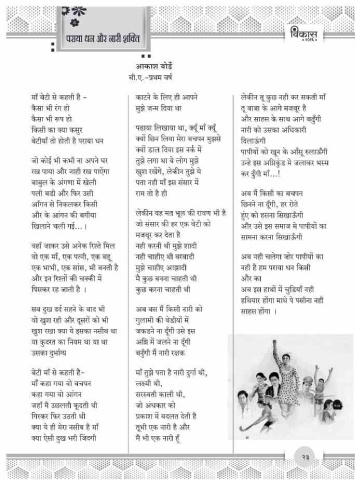 पराया धन और नारी शक्ति
विकास
आकाश बोर्डे
बी.ए.-प्रथम वर्ष
माँ बेटी से कहती है -
कैसा भी रंग हो
कैसा भी रूप हो
किसी का क्या कसुर
बेटीयाँ तो होती है पराया धन
जो कोई भी कभी ना अपने घर
रख पाया और नाही रख पाऐगा
बाबुल के अंगणा में खेली
पली बडी और फिर उसी
आँगन से निकलकर किसी
और के आंगन की बगीया
खिलाने चली गई...।
वहाँ जाकर उसे अनेक रिश्ते मिल
वो एक माँ, एक पत्नी, एक बहू
एक भाभी, एक सांस, भी बनती है
और इन रिश्तों की चक्की में
पिसकर रह जाती है ।
सब दुख दर्द सहने के बाद भी
वो खुश रही और दूसरों को भी
खुश रखा क्या ये इसका नसीब था
या कुदरत का नियम था या था
उसका दुर्भाग्य
बेटी माँ से कहती है-
माँ कहा गया वो बचपन
कहा गया वो आंगन
जहाँ मैं उछलती कूदती थी
गिरकर फिर उठती थी
क्या ये ही मेरा नसीब है माँ
क्या ऐसी दुख भरी जिंदगी
काटने के लिए ही आपने
मुझे जन्म दिया था
पढाया लिखाया था, क्यूँ माँ क्यूँ
क्यों छिन लिया मेरा बचपन मुझसे
क्यों डाल दिया इस नर्क में
तुझे लगा था वे लोग मुझे
खुश रखेंगे, लेकीन तुझे ये
पता नही माँ इस संसार में
राम तो है ही
लेकीन यह मत भूल की रावण भी है
जो संसार की हर एक बेटी को
मजबूर कर देता है
नही करनी थी मुझे शादी
नही चाहीए थी बरबादी
मुझे चाहीए आझादी
मै कुछ बनना चाहती थी
कुछ करना चाहती थी
अब बस मैं किसी नारी को
गुलामी की बेडीयों में
जकडने ना दूँगी उसे इस
अग्नि में जलने ना दूँगी
बनुँगी मैं नारी रक्षक
माँ तुझे पता है नारी दुर्गा थी,
लक्ष्मी थी,
सरस्वती काली थी,
जो अंधकार को
प्रकाश में बदलत देती है
तूभी एक नारी है और
मै भी एक नारी हूँ
लेकीन तू कुछ नही कर सकती माँ
तू बाबा के आगे मजबूर है
और साहस के साथ आगे बढुँगी
नारी को उसका अधिकारी
दिलाऊंगी
पापीयों को खून के आँसू रुलाऊँगी
उन्हे इस अग्निकुंड मे जलाकर भस्म
कर दुँगी माँ...!
अब मैं किसी का बचपन
छिनने ना दूँगी, हर रोते
हुए को हसना सिखाऊँगी
और उसे इस समाज मे पापीयों का
सामना करना सिखाऊँगी
अब नही चलेगा जोर पापीयों का
नही है हम पराया धन किसी
और का
अब इस हाथों में चुडियाँ नही
हथियार होंगा माथे पे पसीना नही
साहस होंगा ।
२३